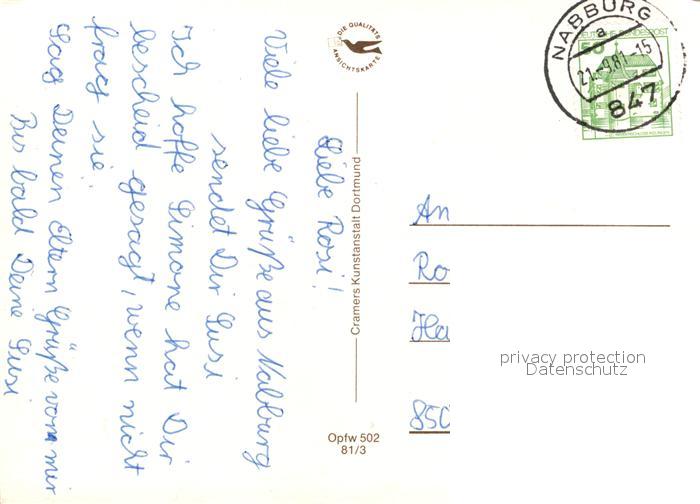 Liebe Rosi!
Viele liebe Grüße aus Nabburg
sendet Dir Susi
Ich hoffe Simone hat Dir
bescheid gesagt, wenn nicht
frag sie.
Sag Deinen Eltern Grüße von mir
Bis bald Deine Susi
DIE QUALITÄTS
ANSICHTSKARTE
Cramers Kunstanstalt Dortmund
Opfw 502
81/3
NABBURG
a
21.-9.81-15
847
DEUTSCHE BUNDESPOST
50
An
Ro
Ha
850
privacy protection
Datenschutz